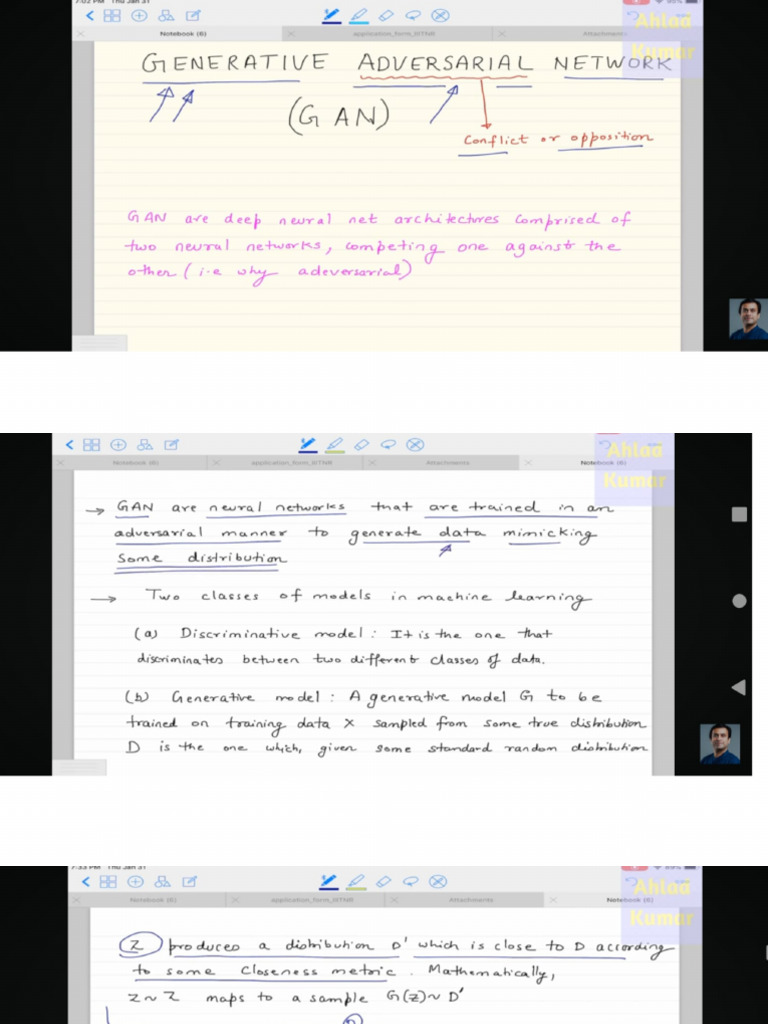 7:02 PM Thu Jan 31
Ahlad
Kumar
Notebook (6) application_form_IIITNR Attachments
GENERATIVE ADVERSARIAL NETWORK
(GAN)
Conflict or opposition
GAN are deep neural net architectures comprised of
two neural networks, competing one against the
other (i.e why adeversarial)
Ahlad
Kumar
Notebook (6) application_form_IIITNR Attachments Notebook (6)
→ GAN are neural networks that are trained in an
adversarial manner to generate data mimicking
some distribution
→ Two classes of models in machine learning
(a) Discriminative model: It is the one that
discriminates between two different classes of data.
(b) Generative model: A generative model G to be
trained on training data X sampled from some true distribution
D is the one which, given some standard random distribution
7:33 PM Thu Jan 31
89%
Ahlad
Kumar
Notebook (6) application_form_IIITNR Attachments Notebook (6)
Z produces a distribution D' which is close to D according
to some closeness metric. Mathematically,
z ~ Z maps to a sample G(z) ~ D'